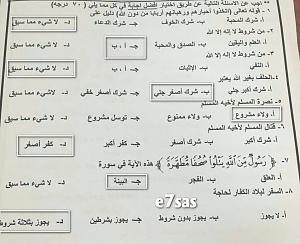 ** أجب عن الاسئلة التالية عن طريق اختيار أفضل اجابة في كل مما يأتي (٧٠ درجة)
١- قوله تعالى (اتخذوا أحبارهم ورهبانهم أربابا من دون الله) دليل على
أ. شرك المحبة ب. شرك الخوف ج- شرك الدعاء د- لا شيء مما سبق
٢- من شروط لا إله إلا الله
أ. العلم واليقين ب. الصدق والمحبة ج- أ ، ب د- لا شيء مما سبق
٣- من شروط لا إله إلا الله
أ. النفي ب. الإثبات ج- أ ، ب د- لا شيء مما سبق
٤- الحلف بغير الله يعتبر
أ. شرك أكبر جلي ب. شرك أصغر جلي ج- شرك أصغر خفي د- لا شيء مما سبق
٥- نصرة المسلم لأخيه المسلم
أ. ولاء مشروع ب- ولاء ممنوع ج- توسل مشروع د- لا شيء مما سبق
٦- قتال المسلم لأخيه المسلم
أ. شرك أكبر ب. شرك أصغر ج- كفر أكبر د- كفر أصغر
٧- ﴿ رَسُولٌ مِنَ اللَّهِ يَتْلُو صُحُفًا مُطَهَّرَةً ﴾ هذه الآية في سورة
أ. العلق ب- الفجر ج- البينة د- لا شيء مما سبق
٨- السفر لبلاد الكفار لحاجة
أ. لا يجوز ب- يجوز بدون شروط ج- يجوز بشرطين د- يجوز بثلاثة شروط
e7sas